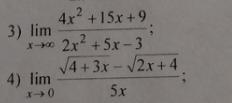 3) lim x→∞ (4x² + 15x + 9)/(2x² + 5x − 3);
4) lim x→0 (√(4 + 3x) − √(2x + 4))/(5x);